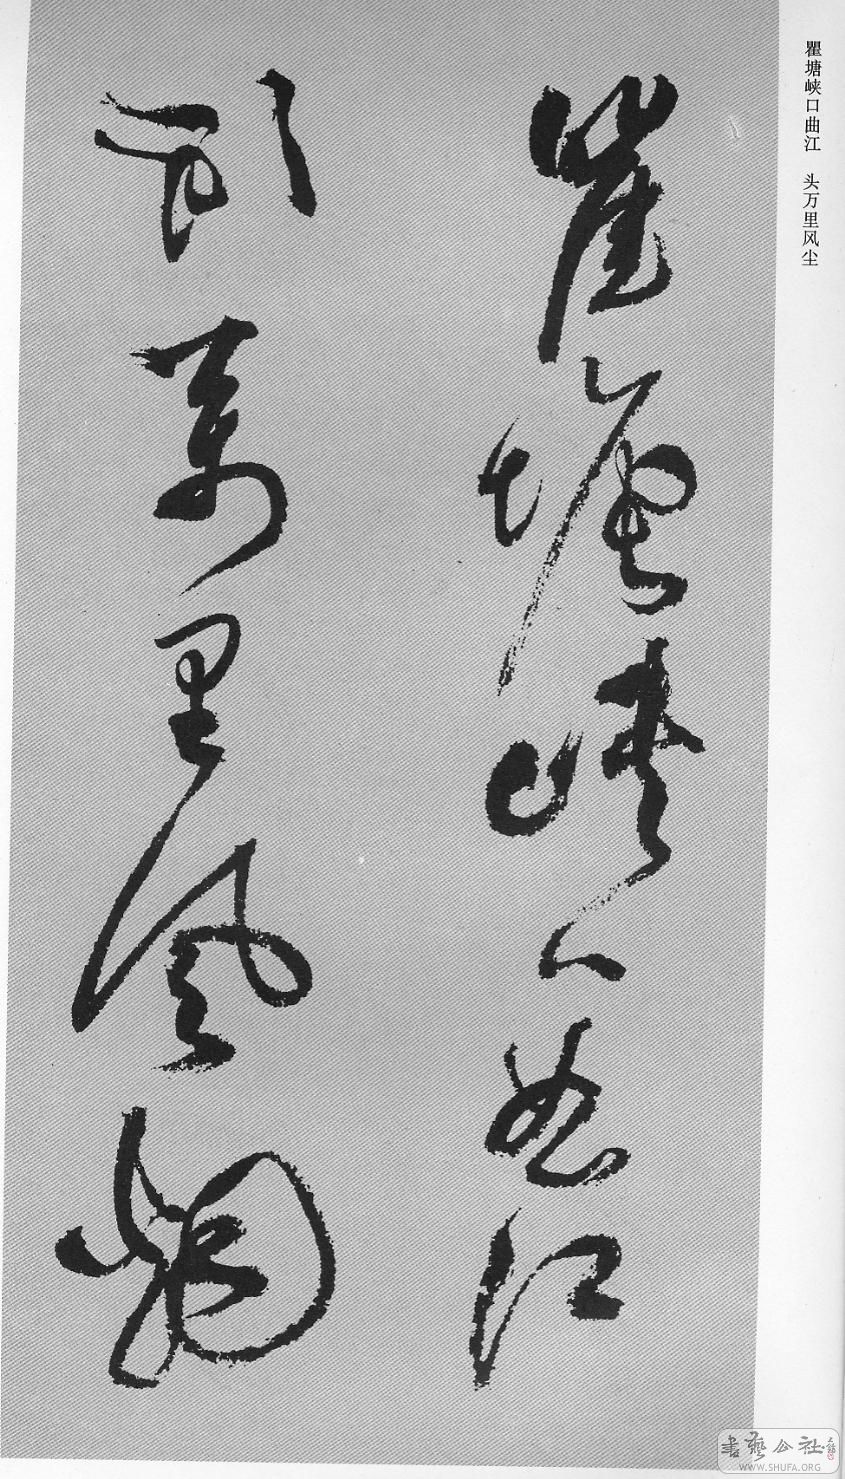 瞿塘峡口曲江　头万里风尘
瞿塘峽口曲江
頭萬里風烟
書藝公社
WWW.SHUFA.ORG